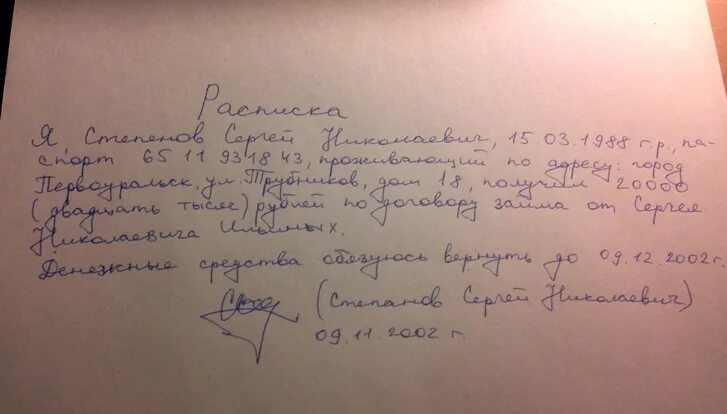 Расписка
Я, Степенов Сергей Николаевич, 15.03.1988 г.р., па-
спорт 65 11 931843, проживающий по адресу: город
Первоуральск, ул. Трубников, дом 18, получил 20000
(двадцать тысяч) рублей по договору займа от Сергея
Николаевича Ильиных.
Денежные средства обязуюсь вернуть до 09.12.2002г.
(Степанов Сергей Николаевич)
09.11.2002 г.